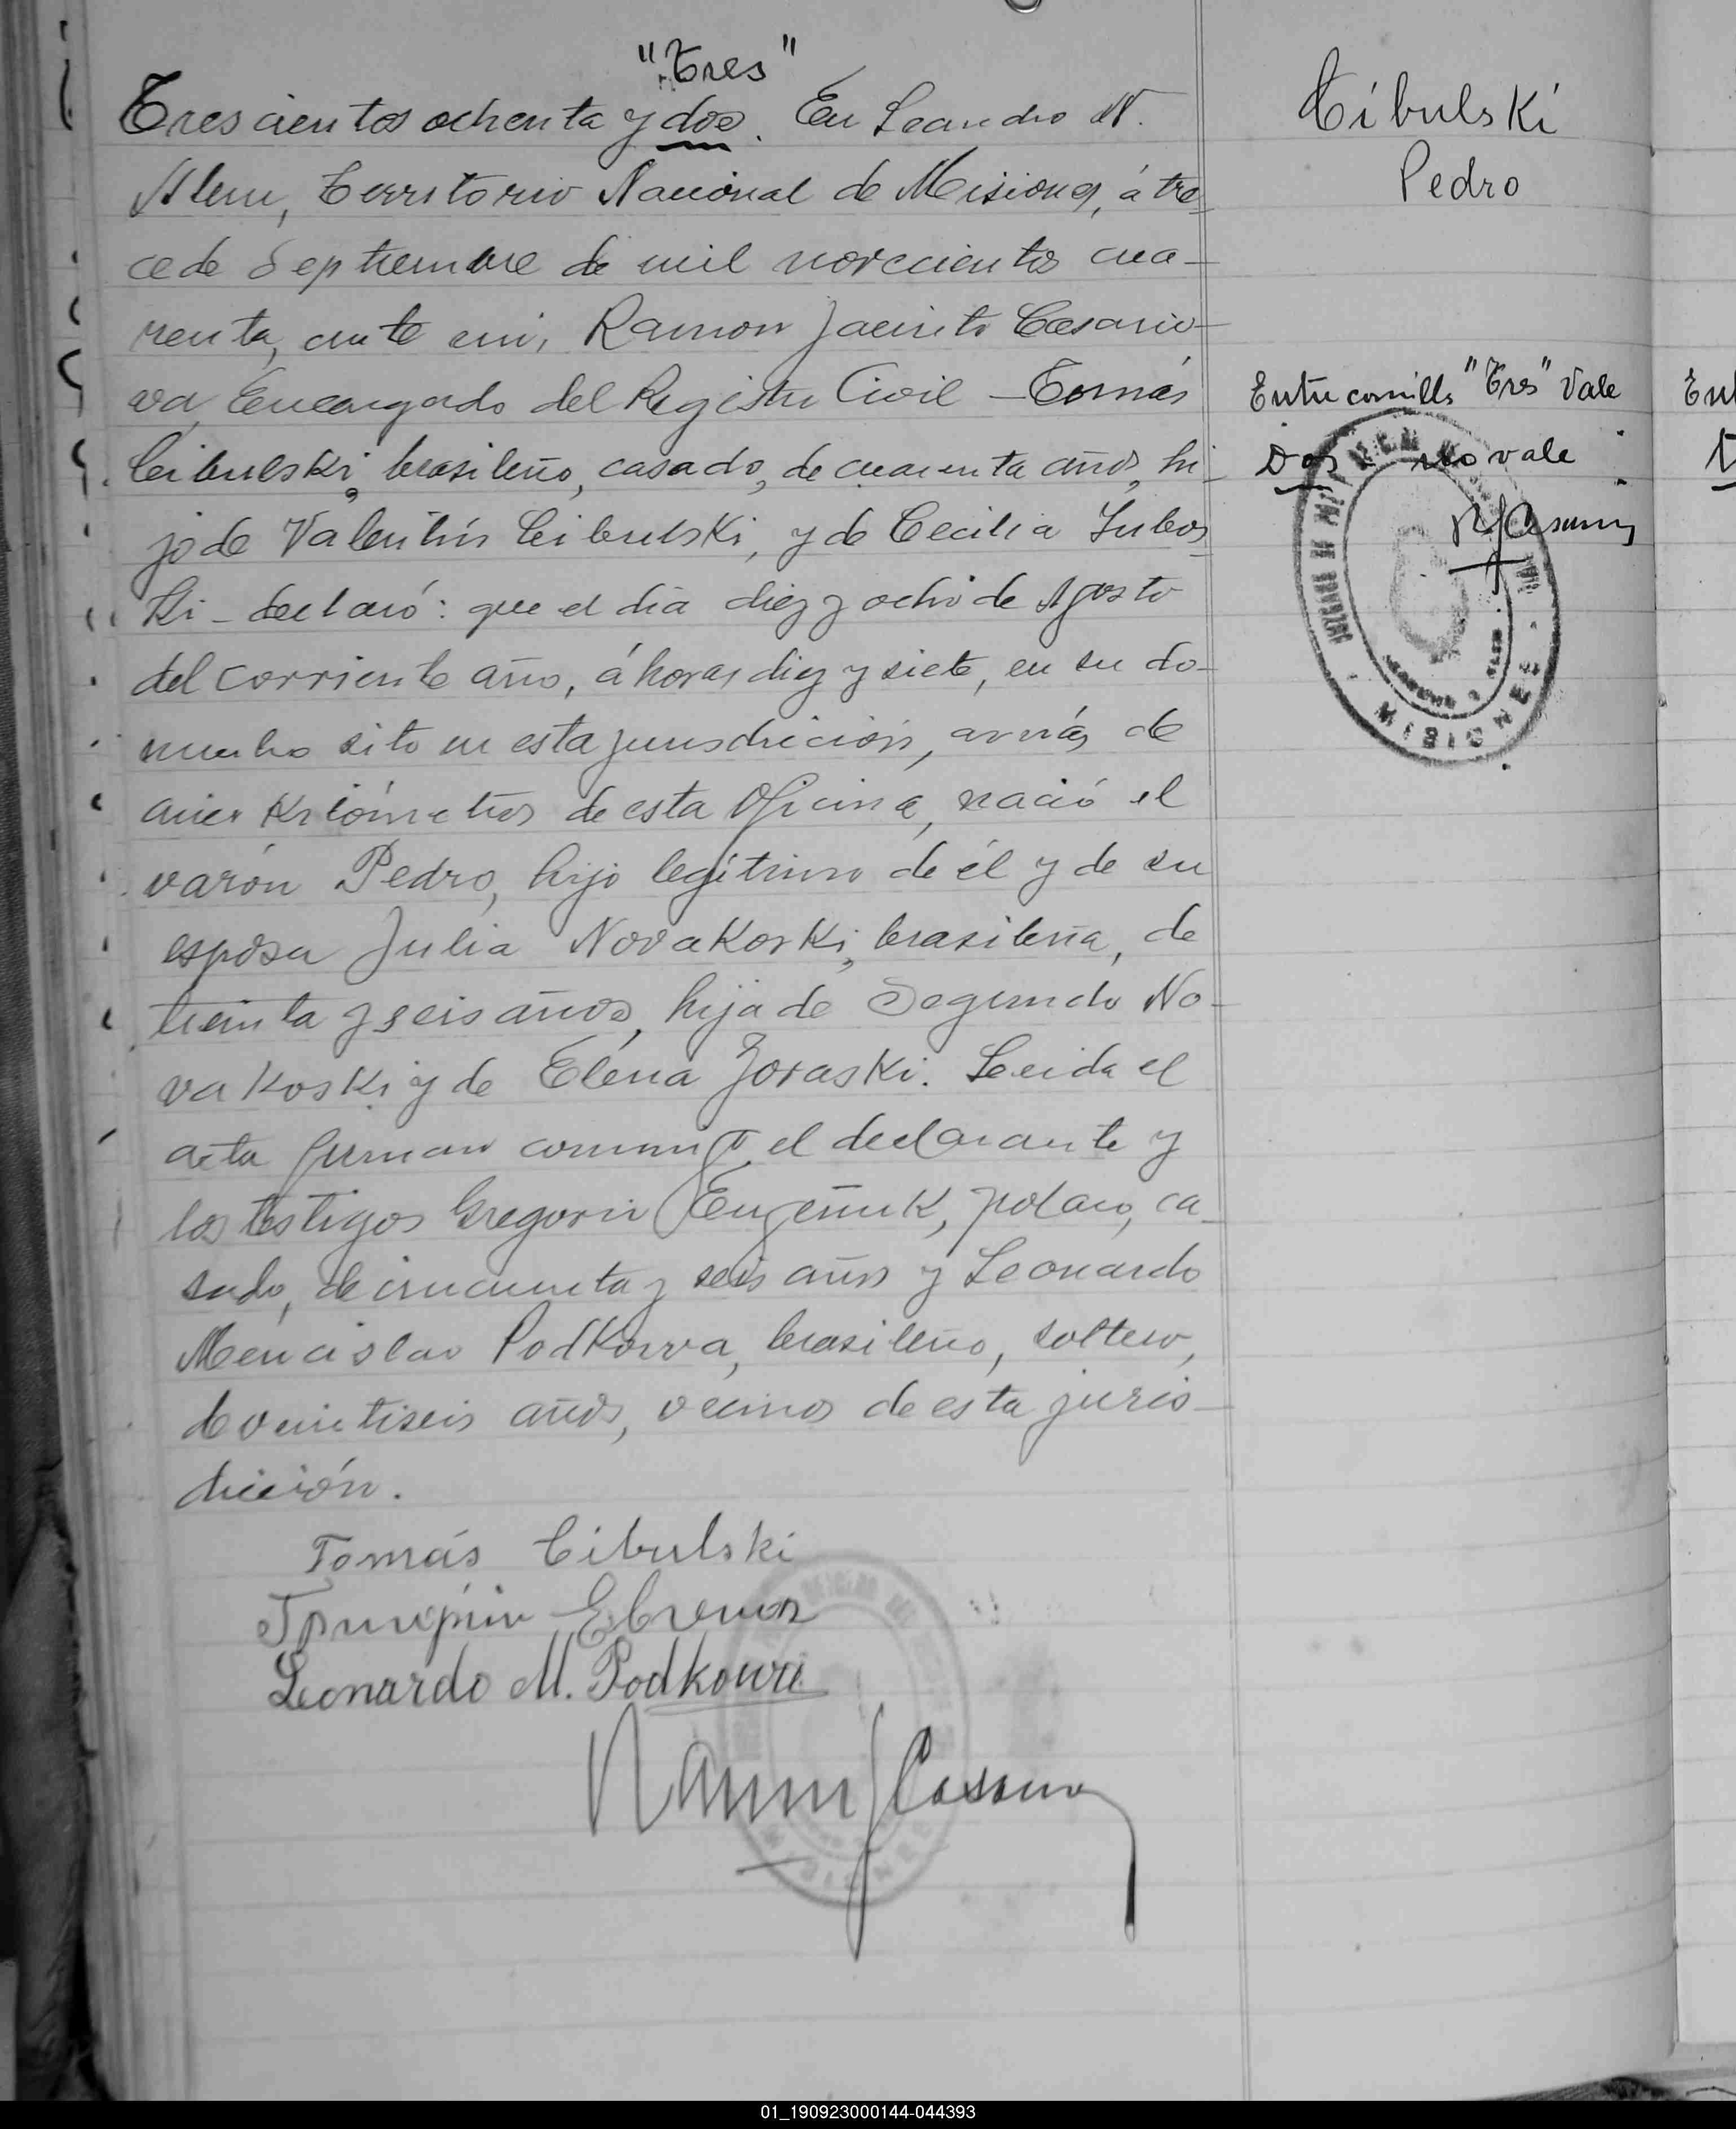 "Tres"
Trescientos ochenta y dos. En Leandro N.
Alem, Territorio Nacional de Misiones, á tre-
ce de Septiembre de mil novecientos cua-
renta, ante mi, Ramon Jacinto Casano-
va, Encargado del Registro Civil – Tomás
Cibulski, brasileño, casado, de cuarenta años, hi-
jo de Valentín Cibulski, y de Cecilia
ki – declaró: que el día diez y ocho de Agosto
del corriente año, á horas diez y siete, en su do-
micilio sito en esta jurisdicción, a más de
kilómetros de esta Oficina, nació el
varón Pedro, hijo legítimo de él y de su
esposa Julia Novakoski, brasileña, de
treinta y seis años, hija de Segundo No-
vakoski y de Elena Joraski. Leida el
acta firman conmigo el declarante y
los testigos Gregorio polaco, ca-
sado, de cincuenta y seis años y Leonardo
Podkowa, brasileño, soltero,
de veintiseis años, vecinos de esta juris-
dicción.
Tomás Cibulski
Leonardo M. Podkowa
Cibulski
Pedro
Entre comillas "Tres" Vale
Dos no vale
MISIONES
01_190923000144-044393